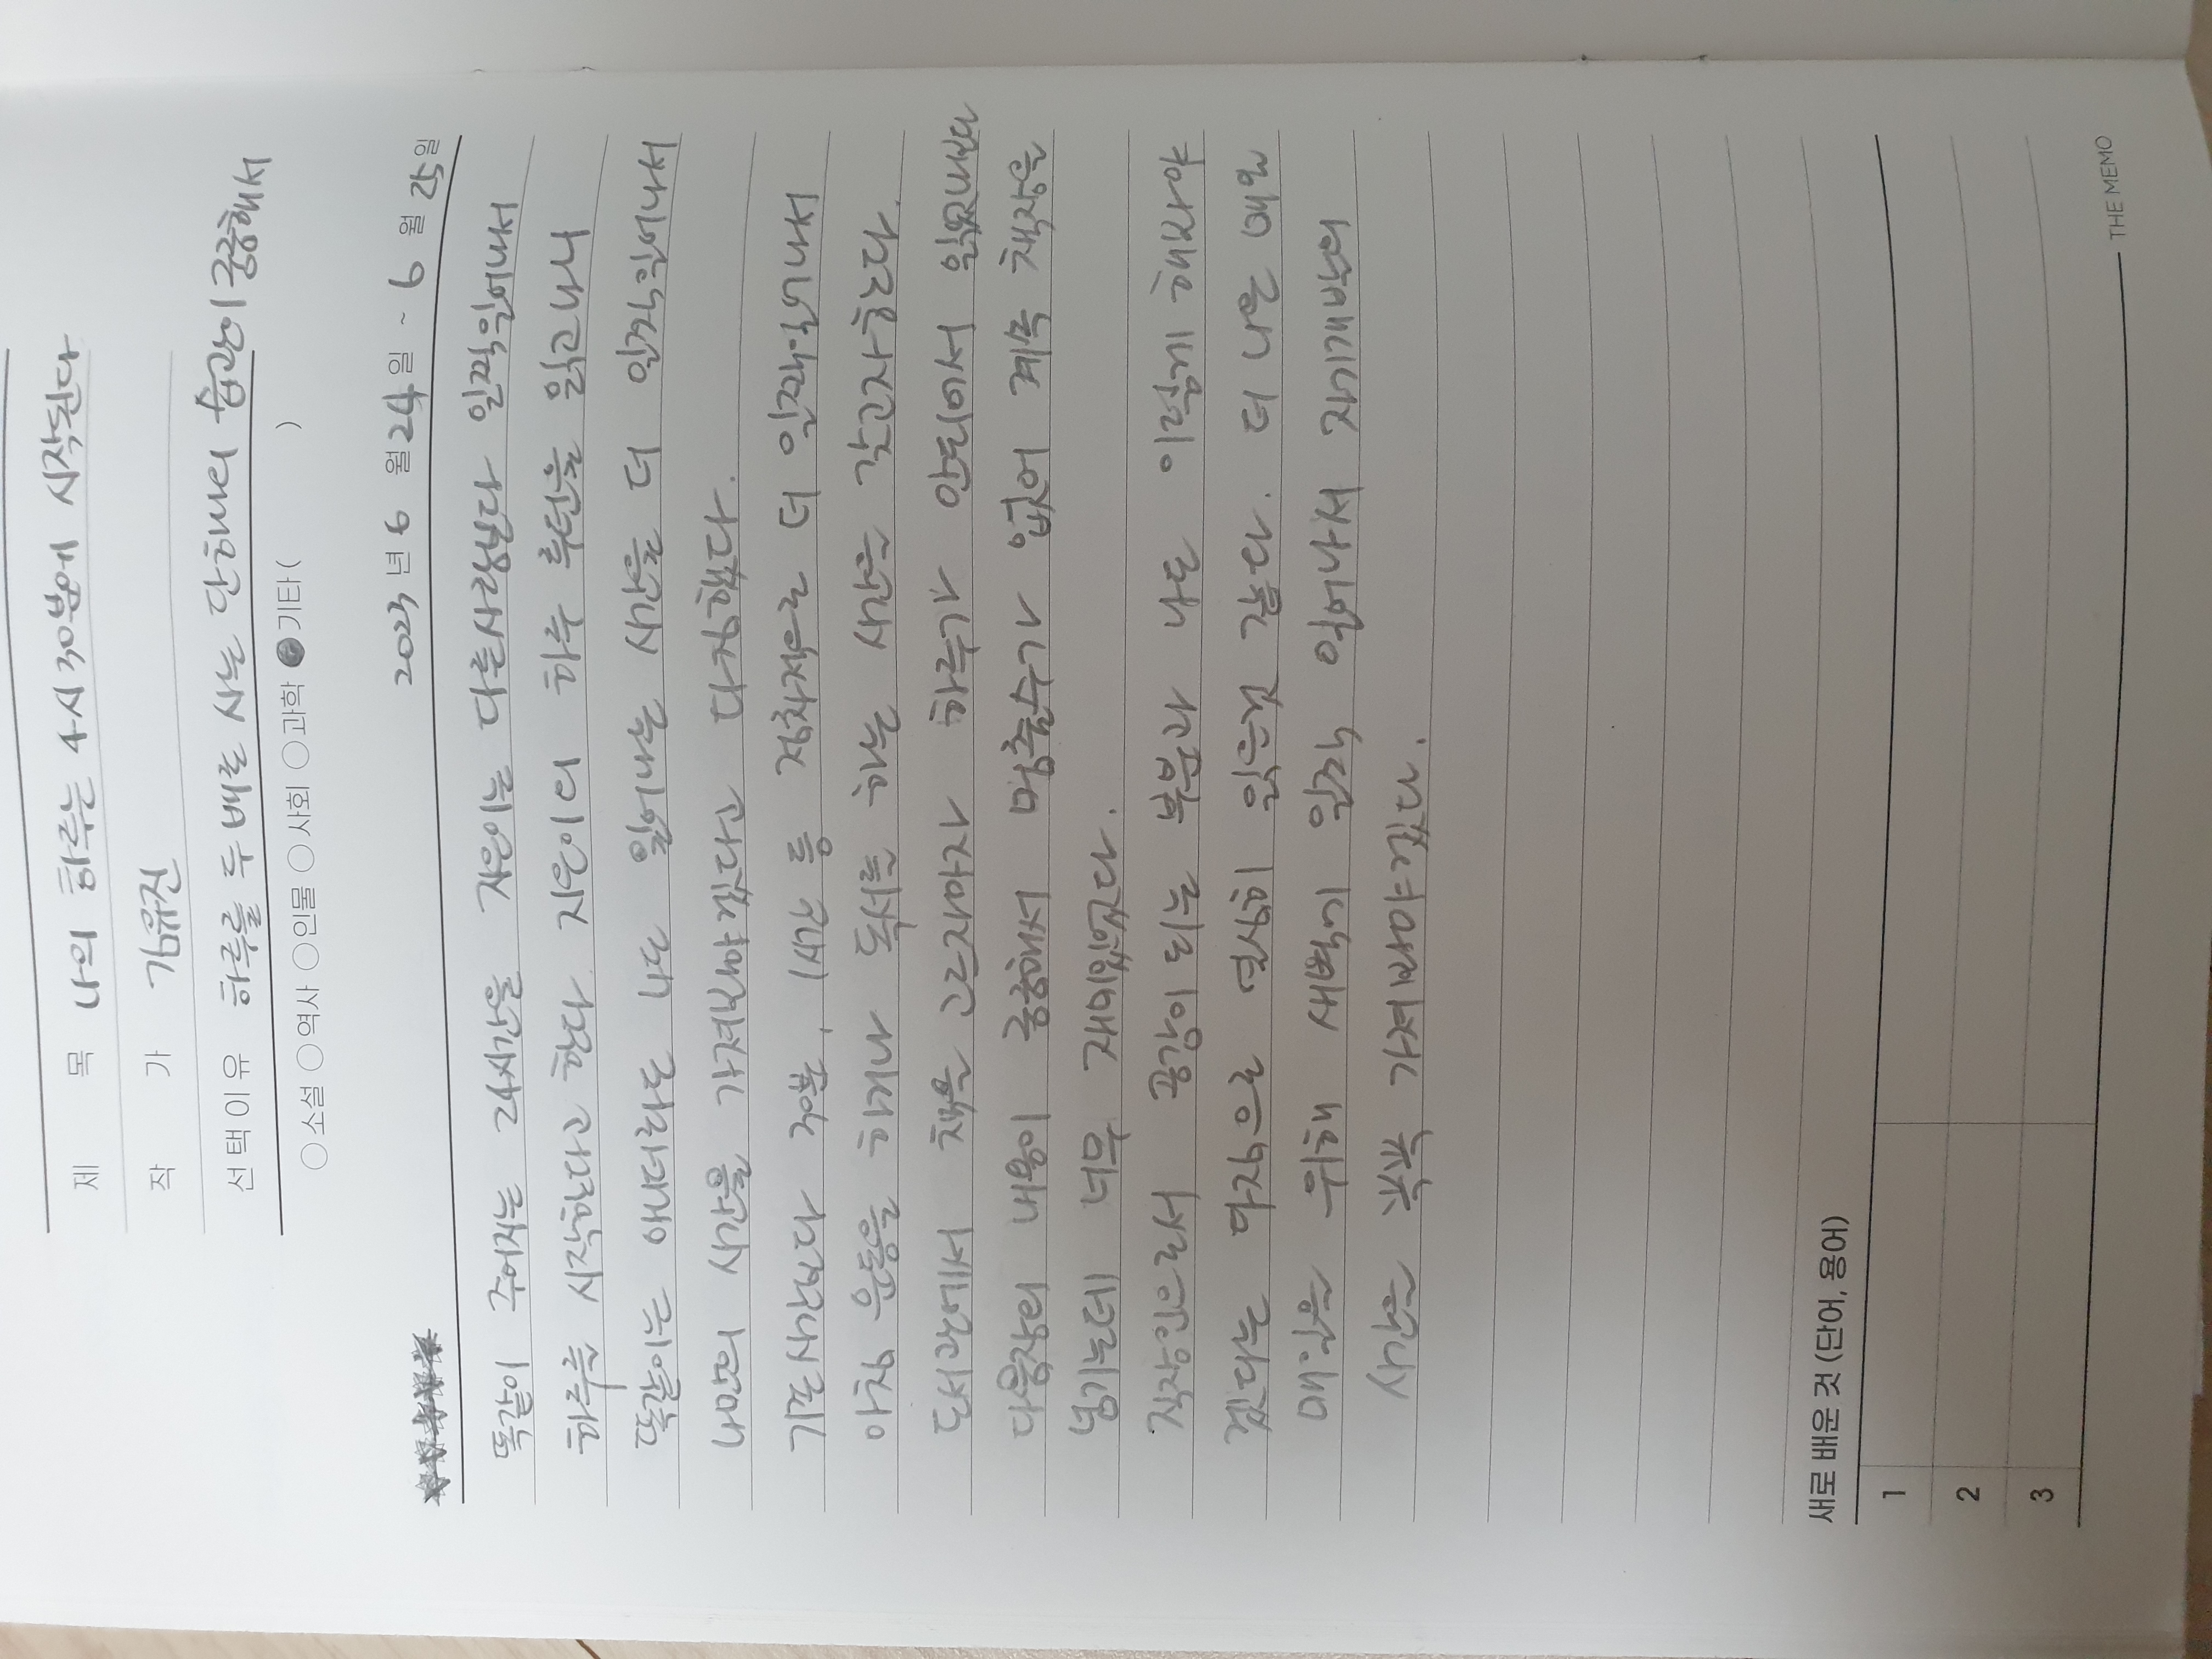 제 목 나의 하루는 4시 30분에 시작된다
작 가 김유진
선택이유 하루를 두 배로 사는 단 하나의 습관이 궁금해서
○소설 ○역사 ○인물 ○사회 ○과학 ●기타 ( )
★★★★★ 2023 년 6 월 24 일 ~ 6 월 25 일
똑같이 주어지는 24시간을 지은이는 다른사람보다 일찍일어나서
하루를 시작한다고 한다. 지은이의 하루 루틴을 읽고나니
똑같이는 아니더라도 나도 일어나는 시간을 더 일찍일어나서
나만의 시간을 가져봐야겠다고 다짐했다.
기존시간보다 30분, 1시간 등 점차적으로 더 일찍일어나서
아침 운동을 하거나 독서를 하는 시간을 갖고자한다.
도서관에서 책을 고르자마자 하루가 안되어서 읽었나보다
다음장의 내용이 궁금해서 멈출수가 없어 계속 책장을
넘기는데 너무 재미있었다.
직장인으로서 공감이 되는 부분과 나도 이렇게 해봐야
겠다는 다짐으로 열심히 읽은것 같다. 더 나은
매일을 위해 새벽에 일찍 일어나서 자기개발의
시간을 꼭꼭 가져봐야겠다.
새로 배운 것 (단어, 용어)
1
2
3
THE MEMO